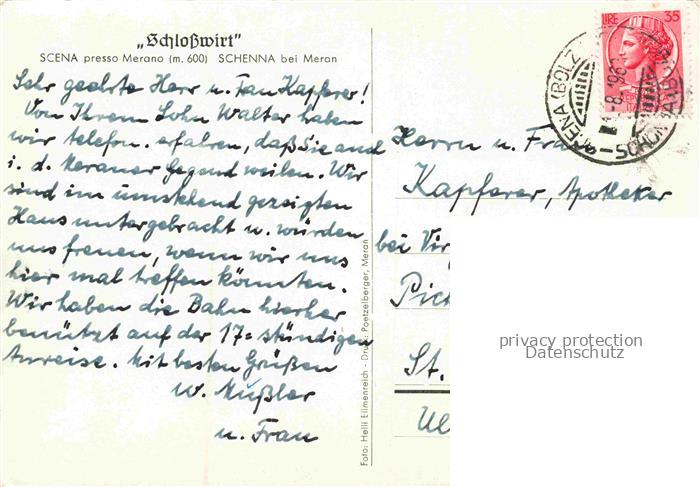 „Schloßwirt"
SCENA presso Merano (m. 600) SCHENNA bei Meran
Sehr geehrte Herr u. Frau Kapferer!
Von Ihrem Sohn Walter haben
wir telefon. erfahren, daß Sie auch
i. d. Meraner Gegend weilen. Wir
sind im umstehend gezeigten
Haus untergebracht u. würden
uns freuen, wenn wir uns
hier mal treffen könnten.
Wir haben die Bahn hierher
benützt auf der 17=stündigen
Anreise. Mit besten Grüßen
W. Mußler
u. Frau
Foto: Helli Ellmenreich - Druck: Poetzelberger, Meran
LIRE 35
SCENA (BOLZ
SCHENNA
Herrn u. Frau
Kapferer, Apotheker
bei Vir
Pic
St.
privacy protection
Datenschutz